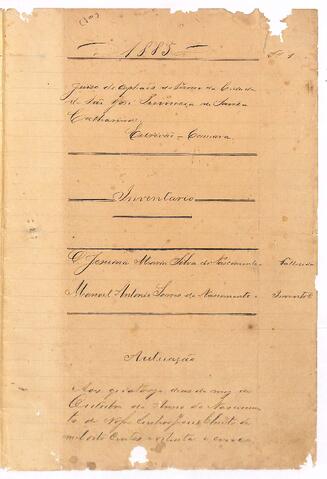 1885
Juizo de Orphãos do Termo da Cidade
de São José Provincia de Santa
Catharina
Escrivão - Camara
Inventario
D. Jesuina Maria Silva do Nascimento Fallecida
Manoel Antonio Soares do Nascimento Invent.e
Autuação
Aos quatorze dias do mez de
Outubro do Anno do Nascimen
to de Nosso Senhor Jesus Christo de
mil oito centos e oitenta e cinco